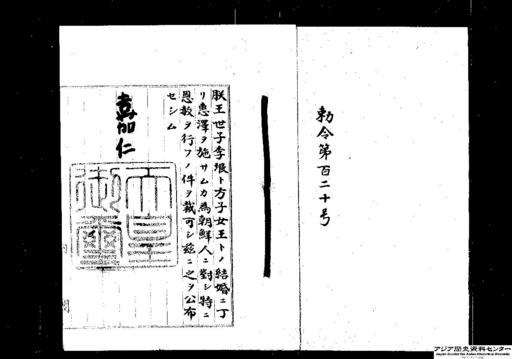 勅令第百二十号
朕王世子李垠ト方子女王トノ結婚ニ丁
リ恵澤ヲ施サムカ為朝鮮人ニ對シ特ニ
恩赦ヲ行フノ件ヲ裁可シ茲ニ之ヲ公布
セシム
嘉仁
天皇御璽
内閣
アジア歴史資料センター
Japan Center for Asian Historical Records